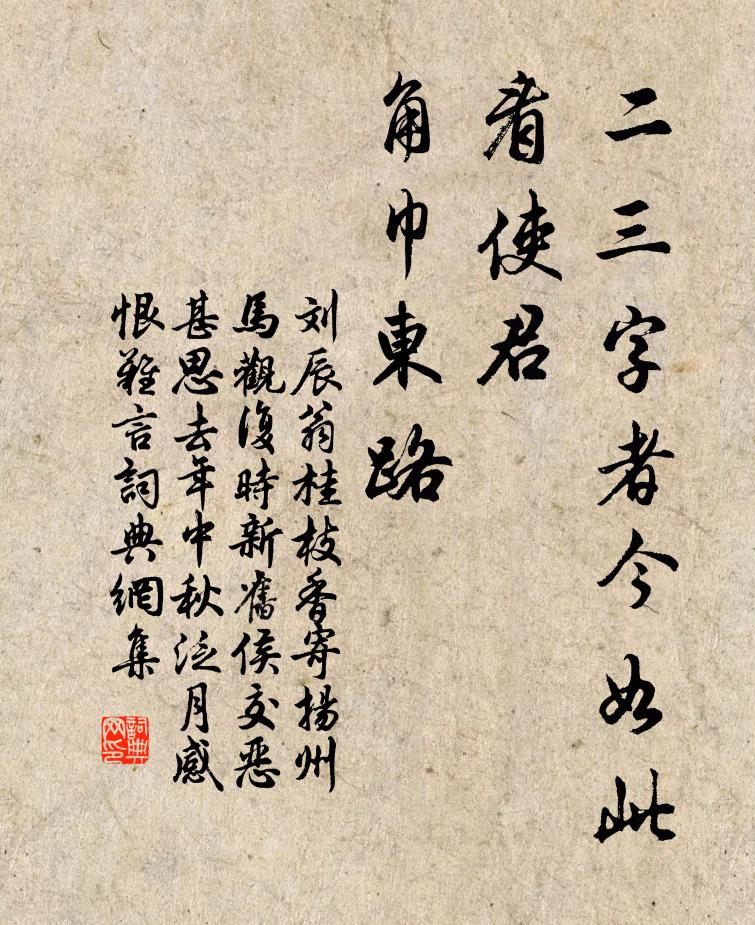 二三字者今如此
看使君
角巾東路
刘辰翁桂枝香寄揚州
馬觀復時新舊侯交惡
甚思去年中秋泛月感
恨難言詞典網集
詞典网印